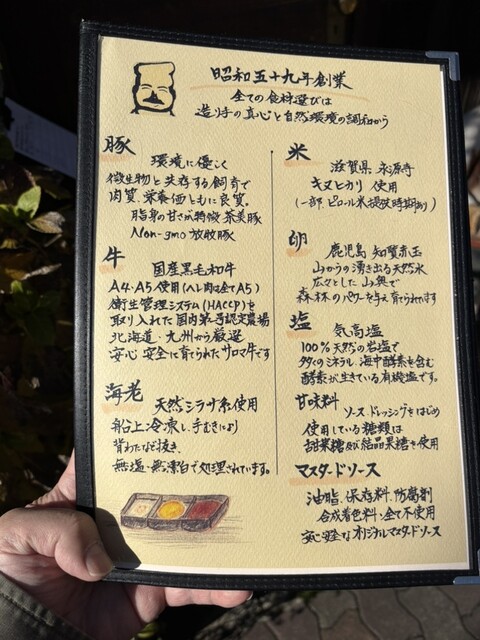 昭和五十九年創業
全ての食材選びは
造り手の真心と自然環境の調和から
豚
環境に優しく
微生物と共存する飼育で
肉質、栄養価ともに良質。
脂身の甘さが特徴 茶美豚
Non-gmo 放牧豚
牛
国産黒毛和牛
A4・A5使用(ヘレ肉は全てA5)
衛生管理システム(HACCP)を
取り入れた国内第1号認定農場
北海道・九州から厳選
安心 安全に育てられたサロマ牛です
海老
天然シラサ系使用
船上冷凍し、手むきにより
背わたなど抜き、
無塩・無漂白で処理されています。
米
滋賀県 永源寺
キヌヒカリ 使用
(一部 ピロール米提供時期あり)
卵
鹿児島 知覧赤玉
山からの湧き出る天然水
広々とした山奥で
森林のパワーを与え育てられてます
塩
気高塩
100%天然の岩塩で
多くのミネラル、海中酵素を含む
酵素が生きている有機塩です。
甘味料
ソース ドレッシングをはじめ
使用している糖類は
甜菜糖及び結晶果糖を使用
マスタードソース
油脂、保存料、防腐剤
合成着色料、全て不使用
安心安全なオリジナルマスタードソース